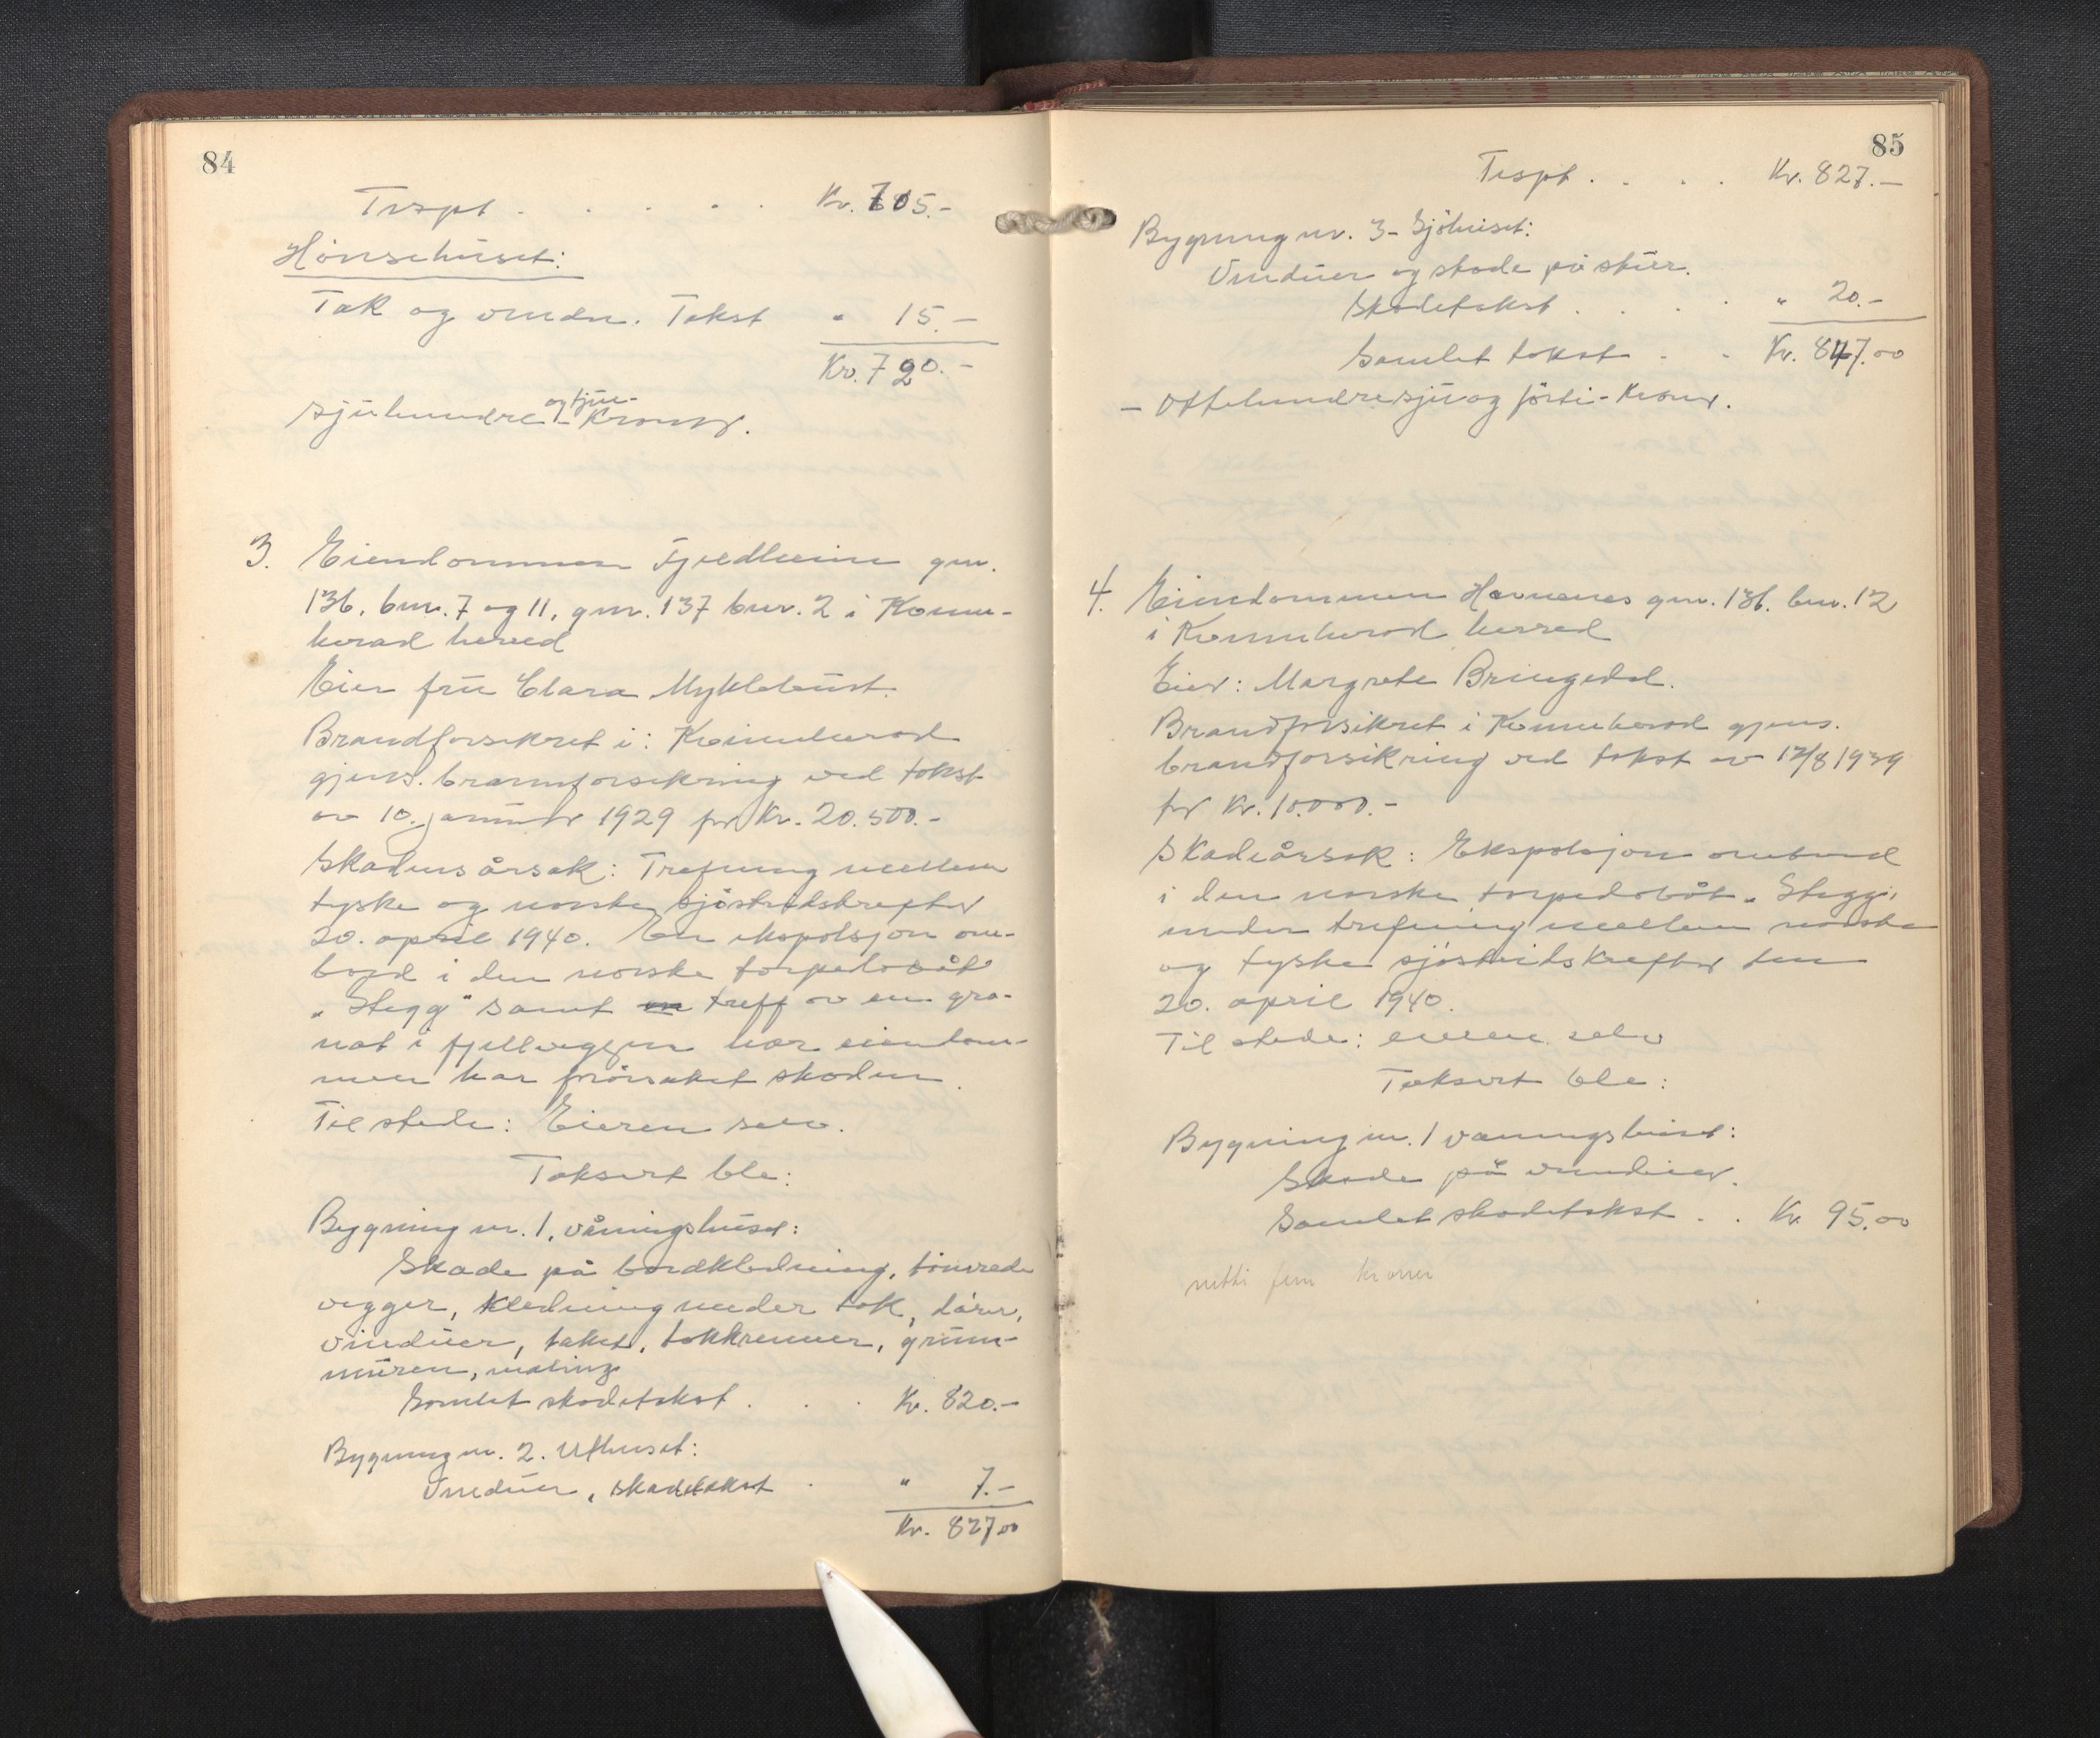 84
Trspt . . . . . Kr. 705.-
Hønsehuset:
Tak og vindu. Takst " 15.-
Kr. 720.-
og tjue-
Sjuhundre - Kroner.
3. Eiendommen Fjeldheim gnr.
136. bnr. 7 og 11, gnr. 137 bnr. 2 i Kvinn-
herad herred
Eier frü Clara Myklebust.
Brandforsikret i: Kvinnherad
gjens. brannforsikring ved takst
av 10. januar 1929 for Kr. 20.500.-
Skadens årsak: Trefning mellem
tyske og norske sjöstridskrefter
20. april 1940. En ekspolsjon om-
bord i den norske torpedobåt
"Stegg" samt en treff av en gra-
nat i fjellveggen nær eiendom-
men har forörsaket skaden.
Til stede: Eieren selv.
Taksert ble:
Bygning nr. 1, våningshuset:
Skade på bordkledning, tömrede
vegger, kledning under tak, dörer,
vinduer, taket, takkrenner, grunn-
muren, maling
Samlet skadetakst . . . Kr. 820.-
Bygning nr. 2. Uthuset:
Vinduer, skadetakst . " 7.-
Kr. 827.00
85
Trspt . . . . Kr. 827.-
Bygning nr. 3 - Sjöhuset:
Vinduer og skade på skur.
Skadetakst . . . . " 20.-
Samlet takst . . Kr. 847.00
- Ottehundresju og förti - Kroner.
4. Eiendommen Havnenes gnr. 136. bnr. 12
i Kvinnherad herred
Eier: Margrete Bringedal.
Brandforsikret i Kvinnherad gjens.
brandforsikring ved takst av 12/8 1939
for Kr. 10.000.-
Skadeårsak: Ekspolsjon ombord
i den norske torpedobåt "Stegg"
under trefning mellem norske
og tyske sjöstridskrefter den
20. april 1940.
Til stede: eieren selv
Taksert ble:
Bygning nr. 1 vaningshuset:
Skade på vinduer.
Samlet skadetakst . . Kr. 95.00
nitti fem kroner